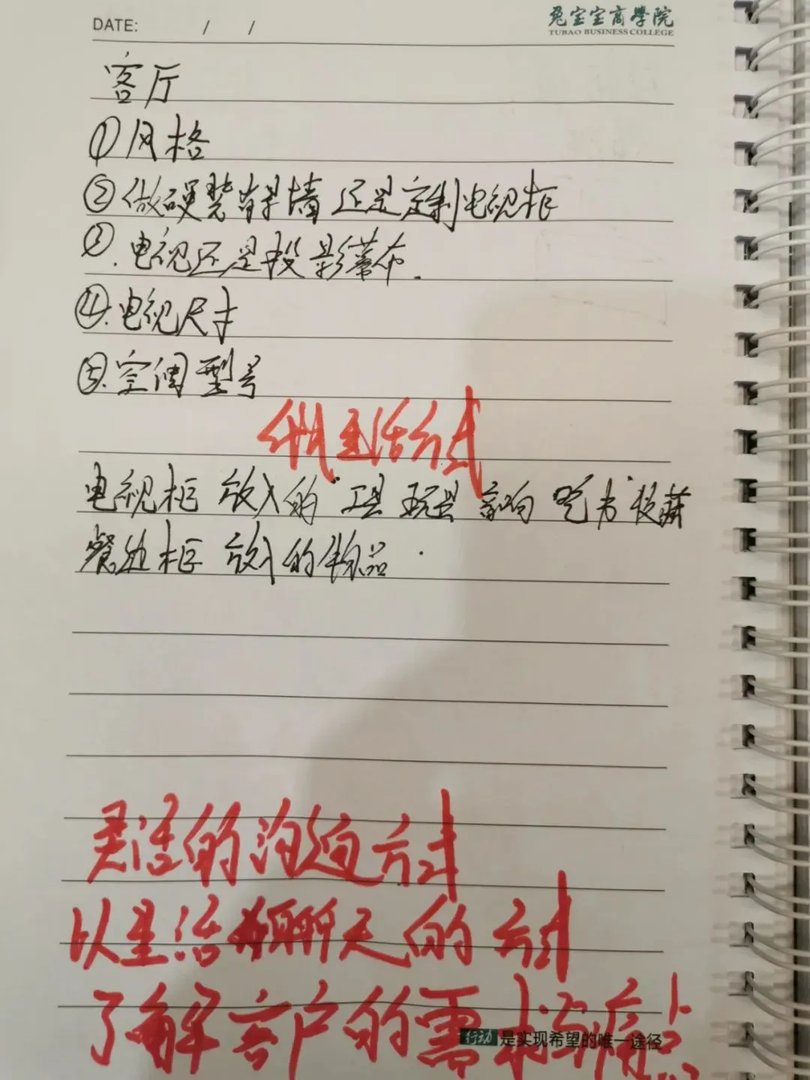 DATE: / /
兔宝宝商學院
TUBAO BUSINESS COLLEGE
客厅
①风格
②做硬装背景墙 还是定制电视柜
③.电视还是投影幕布.
④.电视尺寸
⑤.空调型号
生活方式
电视柜 放入的"工具 玩具 音响 书"收藏
餐边柜 放入的物品.
灵活的沟通方式
以生活聊天的方式
了解客户的需求与痛点
行动 是实现希望的唯一途径